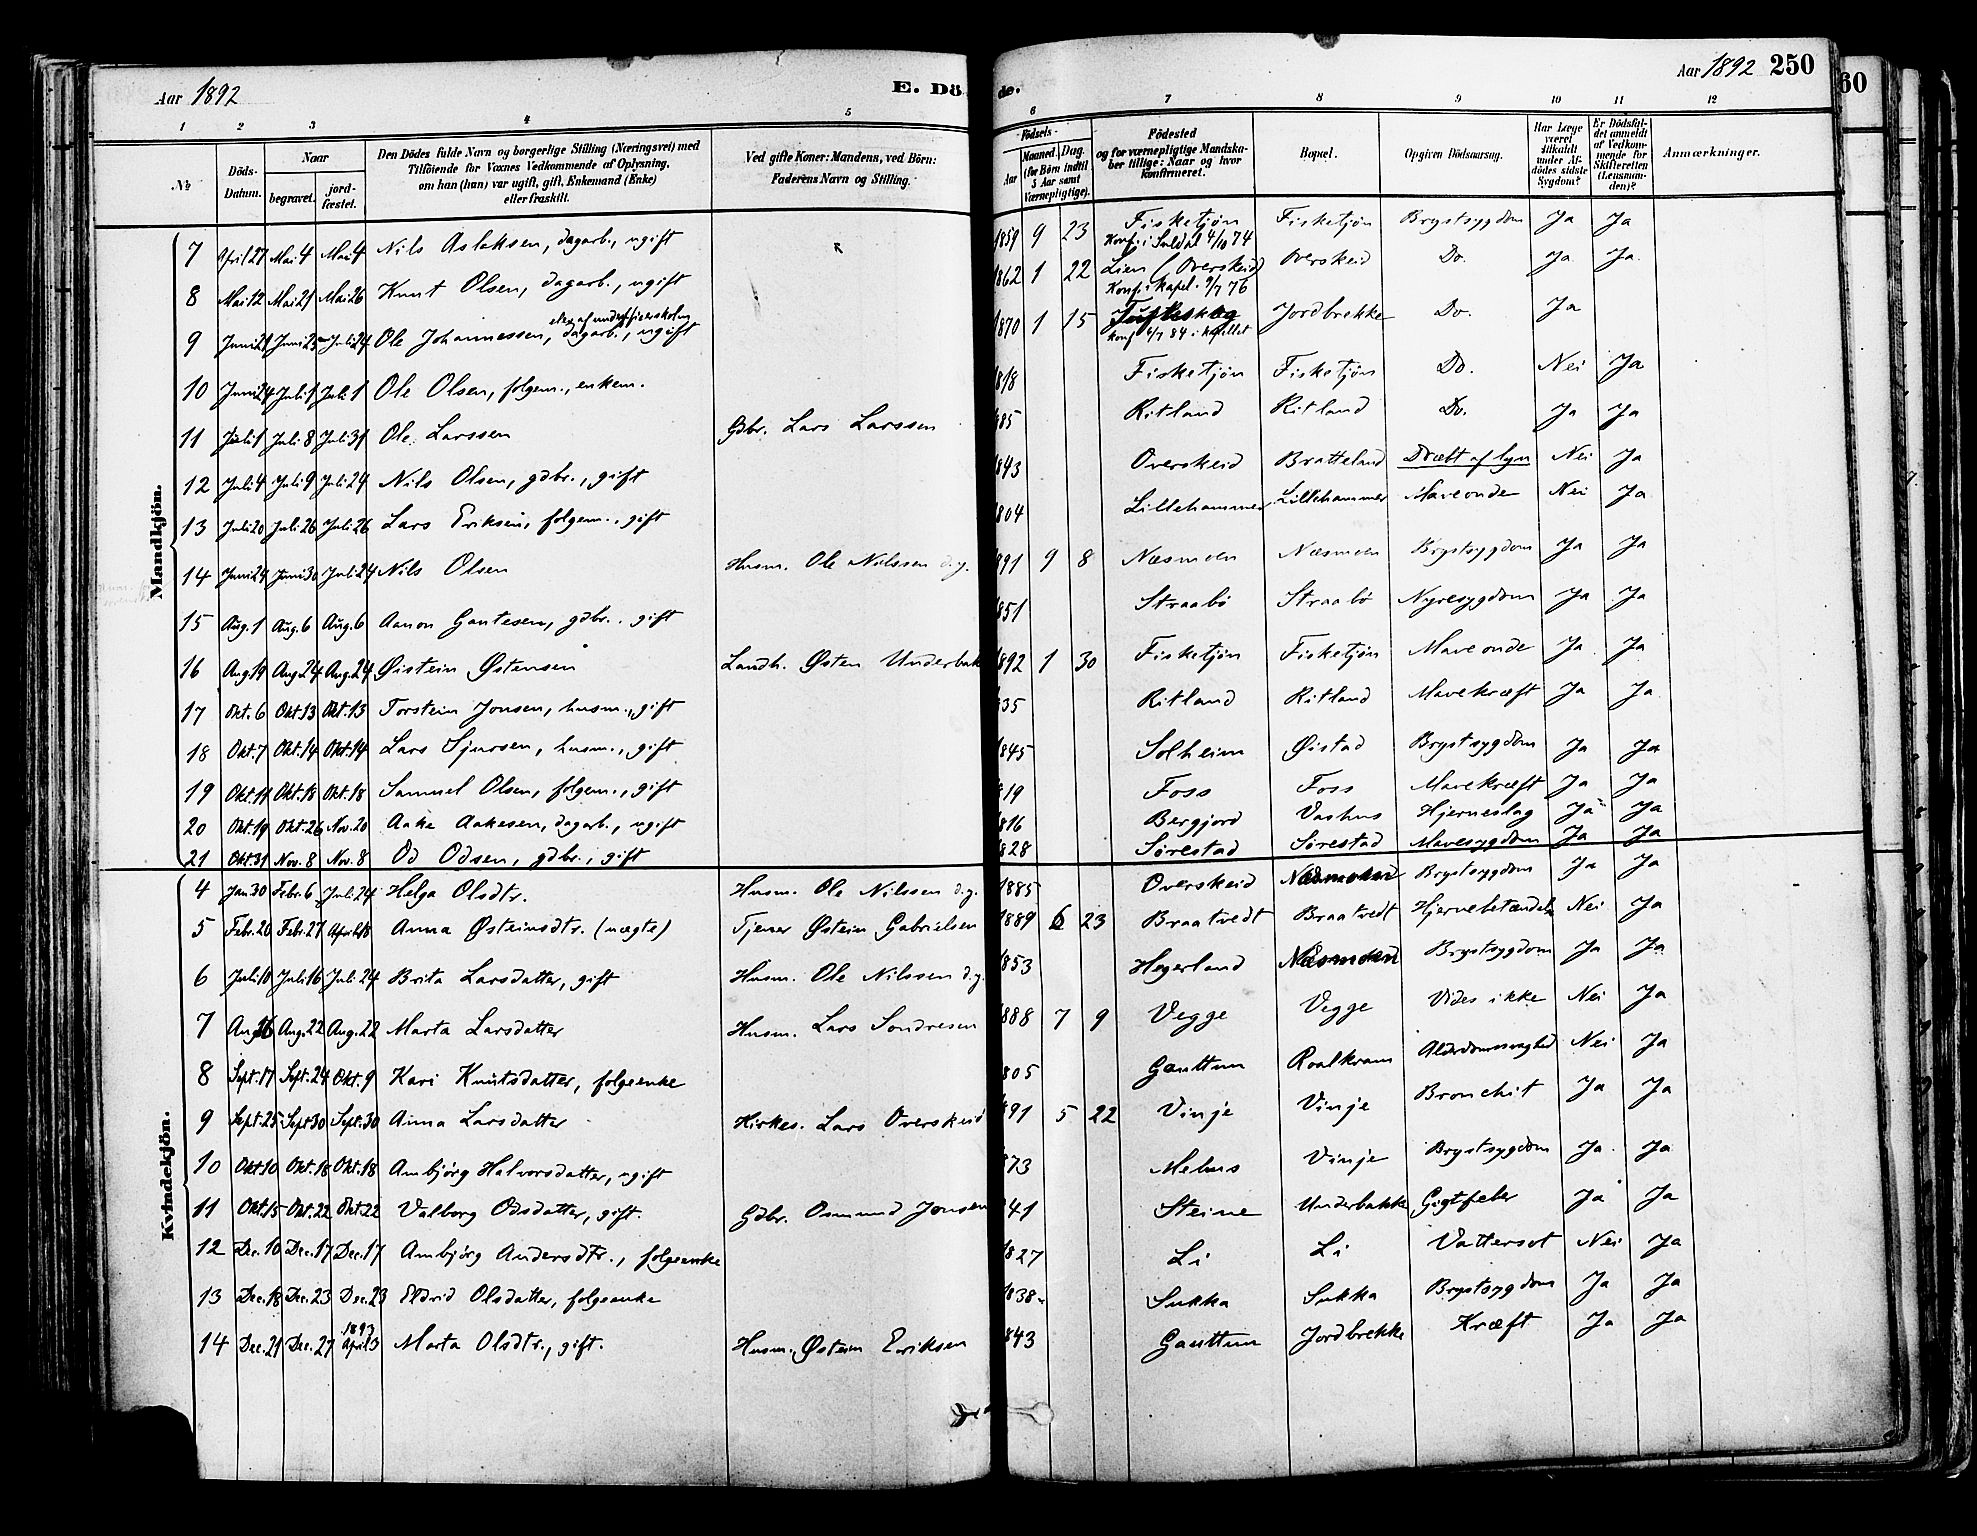 Aar 1892 E. Dö de. Aar 1892 250
60
1 2 3 4 5 6 7 8 9 10 11 12
№ Döds-Datum. Naar begravet. jord-fæstet. Den Dödes fulde Navn og borgerlige Stilling (Næringsvei) med Tilföiende for Voxnes Vedkommende af Oplysning, om han (hun) var ugift, gift, Enkemand (Enke) eller fraskilt. Ved gifte Koner: Mandens, ved Börn: Faderens Navn og Stilling. Födsels- Aar Maaned. Dag. (for Börn indtil 5 Aar samt Værnepligtige). Födested og for værnepligtige Mandskaber tillige: Naar og hvor konfirmeret. Bopæl. Opgiven Dödsaarsag. Har Læge været tilkaldt under Afdödes sidste Sygdom? Er Dödsfaldet anmeldt af Vedkommende for Skifteretten (Lensmanden)? Anmærkninger.
Mandkjön.
7 April 27 Mai 4 Mai 4 Nils Aslaksen, dagarb., ugift 1859 9 23 Fisketjøn Konf. i Suldal 4/10 74 Fisketjøn Brystsygdom Ja Ja
8 Mai 12 Mai 21 Mai 26 Knut Olsen, dagarb., ugift 1862 1 22 Lien (Overskeid) Konf. i kapel. 9/7 76 Overskeid Do. Ja Ja
9 Juni 21 Juni 25 Juli 24 Ole Johannessen, elev af underofficerskolen dagarb., ugift 1870 1 15 konf 6/7 84 i kapellet Jordbrekke Do. Ja
10 Juni 24 Juli 1 Juli 1 Ole Olsen, folgem., enkem. 1818 Fisketjøn Fisketjøn Do. Nei Ja
11 Juli 1 Juli 8 Juli 31 Ole Larssen Gdbr. Lars Larssen 85 Ritland Ritland Do. Ja Ja
12 Juli 4 Juli 9 Juli 24 Nils Olsen, gdbr., gift 843 Overskeid Bratteland Dræbt af lyn Nei Ja
13 Juli 20 Juli 26 Juli 26 Lars Eriksen, folgem., gift 804 Lillehammer Lillehammer Maveonde Nei Ja
14 Juni 24 Juni 30 Juli 24 Nils Olsen Husm. Ole Nilssen d.y. 91 9 8 Næsmoen Næsmoen Brystsygdom Ja Ja
15 Aug. 1 Aug. 6 Aug. 6 Aanon Gautesen, gdbr., gift 851 Straabø Straabø Nyresygdom Ja Ja
16 Aug. 19 Aug. 24 Aug. 24 Øistein Østensen Landh. Østen Underbak 1892 1 30 Fisketjøn Fisketjøn Maveonde Ja Ja
17 Okt. 6 Okt. 13 Okt. 13 Torstein Jonsen, husm., gift 35 Ritland Ritland Mavekræft Ja Ja
18 Okt. 7 Okt. 14 Okt. 14 Lars Sjursen, husm., gift 1845 Solheim Øistad Brystsygdom Ja Ja
19 Okt. 11 Okt. 18 Okt. 18 Samuel Olsen, folgem., gift 19 Foss Foss Mavekræft Ja Ja
20 Okt. 19 Okt. 26 Nov. 20 Aake Aakesen, dagarb., ugift 816 Bergjord Vashus Hjerneslag Ja Ja
21 Okt. 31 Nov. 8 Nov. 8 Od Odsen, gdbr., gift 828 Sørestad Sørestad Mavesygdom Ja Ja
Kvindekjön.
4 Jan 30 Febr. 6 Juli 24 Helga Olsdtr. Husm. Ole Nilssen d.y. 1885 Overskeid Næsmoen Brystsygdom Ja Ja
5 Febr. 20 Febr. 27 April 18 Anna Østeinsdtr. (uægte) Tjener Østein Gabrielsen 1889 6 23 Braatvedt Braatvedt Hjernebetændelse Nei Ja
6 Juli 10 Juli 16 Juli 24 Brita Larsdatter, gift Husm. Ole Nilssen d.y. 853 Hegerland Næsmoen Brystsygdom Ja Ja
7 Aug 16 Aug. 22 Aug. 22 Marta Larsdatter Husm. Lars Sondresen 888 7 9 Vegge Vegge Vides ikke Nei Ja
8 Sept. 17 Sept. 24 Okt. 9 Kari Knutsdatter, folgeenke 805 Gauttun Roalkvam Alderdomssvaghed Nei Ja
9 Sept. 25 Sept 30 Sept. 30 Anna Larsdatter Kirkes. Lars Overskeid 91 5 22 Vinje Vinje Bronchit Ja Ja
10 Okt. 10 Okt. 18 Okt. 18 Ambjørg Halvorsdatter, ugift 873 Mehus Vinje Brystsygdom Ja Ja
11 Okt. 15 Okt. 22 Okt. 22 Valborg Odsdatter, gift. Gdbr. Osmund Jonsen 41 Steine Underbakke Gigtfeber Ja Ja
12 Dec. 10 Dec. 17 Dec. 17 Ambjørg Andersdtr., folgeenke 1827 Li Li Vattersot Nei Ja
13 Dec. 18 Dec. 23 Dec. 23 Eldrid Olsdatter, folgeenke 1838 Sukka Sukka Brystsygdom Ja Ja
14 Dec. 21 Dec. 27 1893 April 3 Marta Olsdtr., gift. Husm. Østein Eriksen 843 Gauttun Jordbrekke Kræft Ja Ja